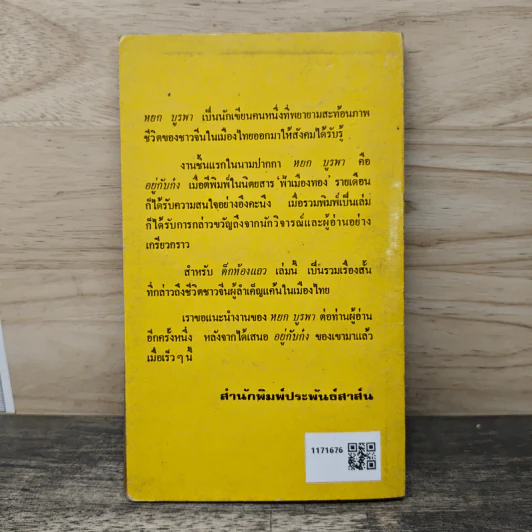 หยก บูรพา เป็นนักเขียนคนหนึ่งที่พยายามสะท้อนภาพ
ชีวิตของชาวจีนในเมืองไทยออกมาให้สังคมได้รับรู้
งานชิ้นแรกในนามปากกา หยก บูรพา คือ
อยู่กับก๋ง เมื่อตีพิมพ์ในนิตยสาร 'ฟ้าเมืองทอง' รายเดือน
ก็ได้รับความสนใจอย่างอึงคะนึง เมื่อรวมพิมพ์เป็นเล่ม
ก็ได้รับการกล่าวขวัญถึงจากนักวิจารณ์และผู้อ่านอย่าง
เกรียวกราว
สำหรับ ตึกห้องแถว เล่มนี้ เป็นรวมเรื่องสั้น
ที่กล่าวถึงชีวิตชาวจีนผู้ลำเค็ญแค้นในเมืองไทย
เราขอแนะนำงานของ หยก บูรพา ต่อท่านผู้อ่าน
อีกครั้งหนึ่ง หลังจากได้เสนอ อยู่กับก๋ง ของเขามาแล้ว
เมื่อเร็ว ๆ นี้
สำนักพิมพ์ประพันธ์สาส์น
1171676